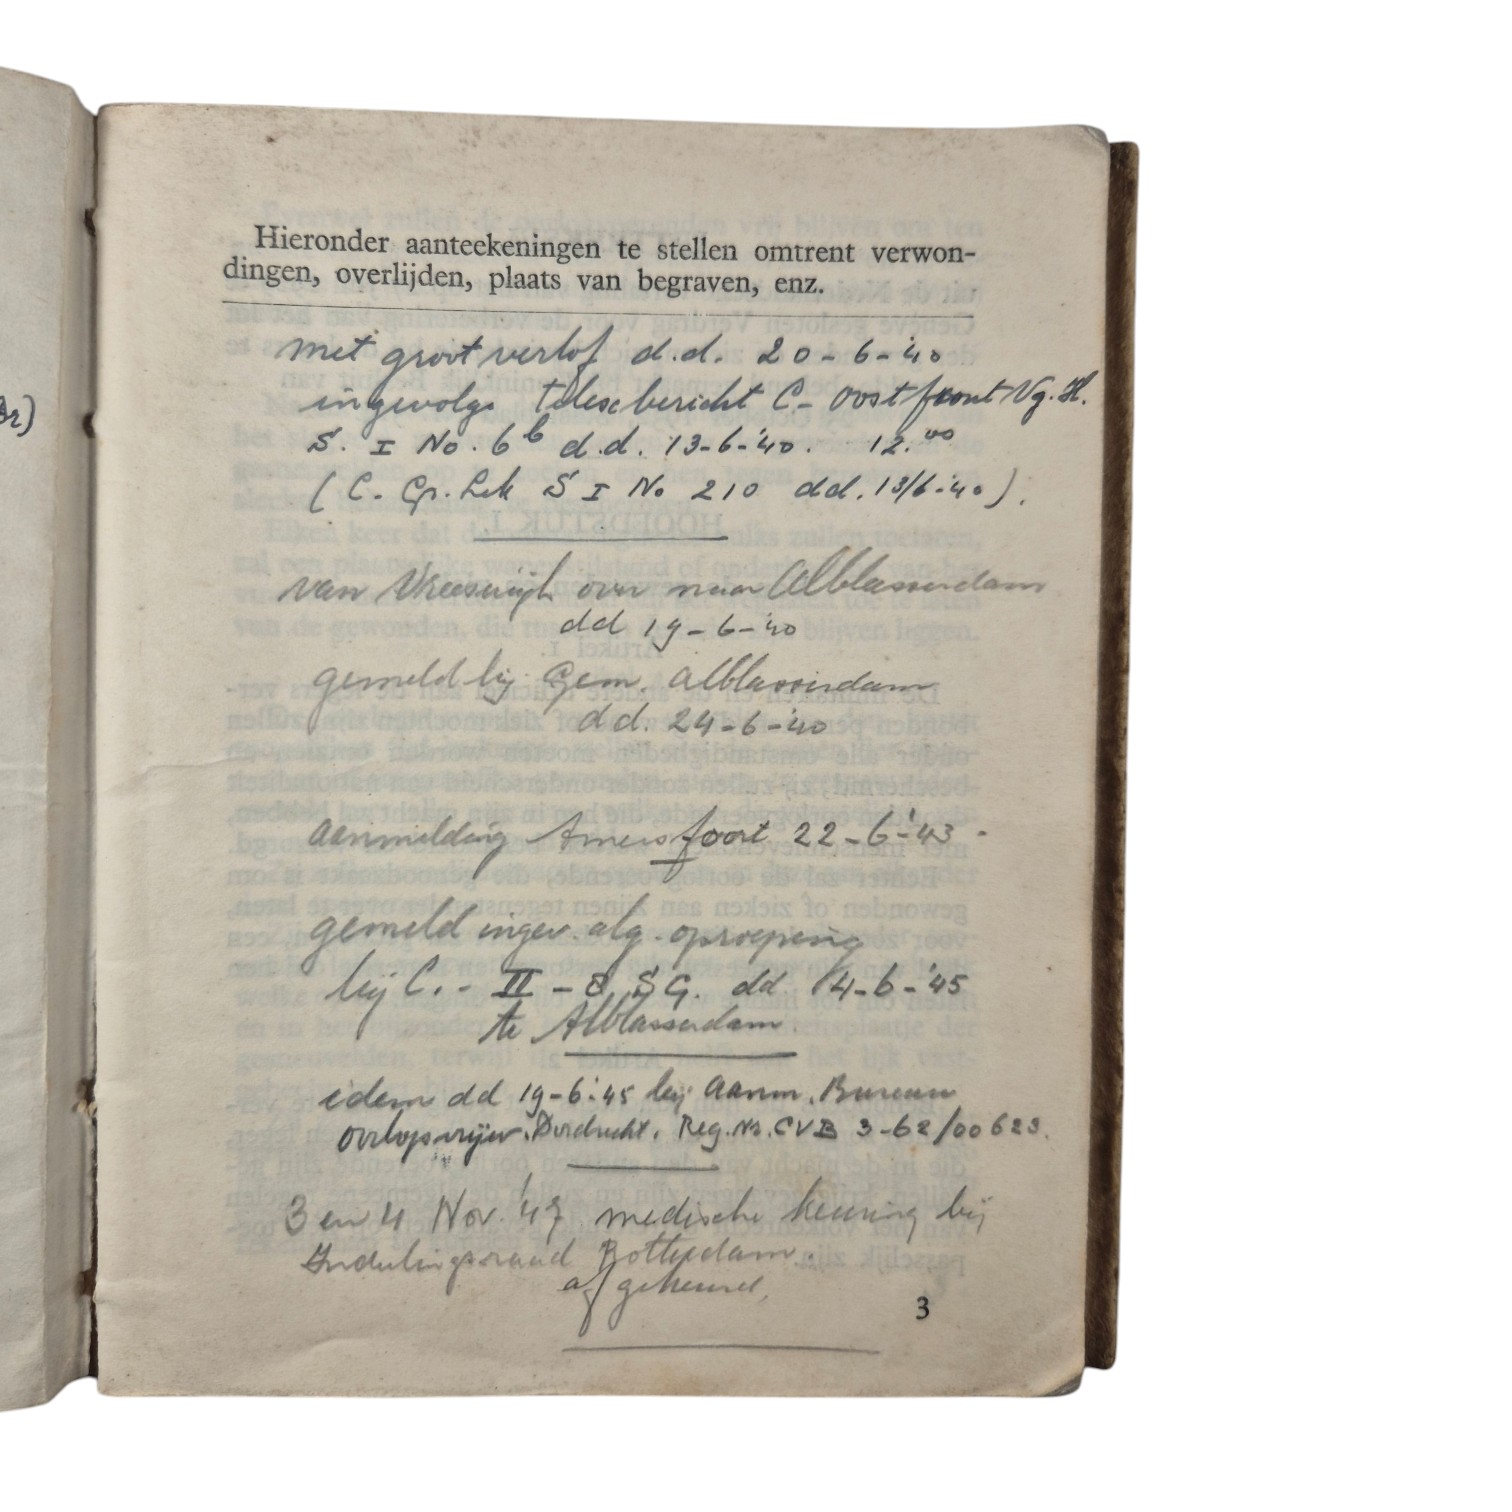 Hieronder aanteekeningen te stellen omtrent verwon-
dingen, overlijden, plaats van begraven, enz.
met groot verlof d.d. 20-6-'40
ingevolge telexbericht C- Oostfront Vg. H.
S. I No. 6b d.d. 13-6-'40. 12.00
(C. Gr. Lek S I No 210 dd. 13/6-40).
van Vreeswijk over naar Alblasserdam
dd 19-6-'40
gemeld bij Gem. Alblasserdam
dd. 24-6-'40
aanmelding Amersfoort 22-6-'43-
gemeld ingev. alg. oproeping
bij C. - II - 8 S.G. dd 14-6-'45
te Alblasserdam
idem dd 19-6-'45 bij Aanm. Bureau
Dordrecht. Reg. No. CVB 3-62/00623.
3 en 4 Nov. '47 medische keuring bij
Indelingsraad Rotterdam.
afgekeurd.
3
Br)